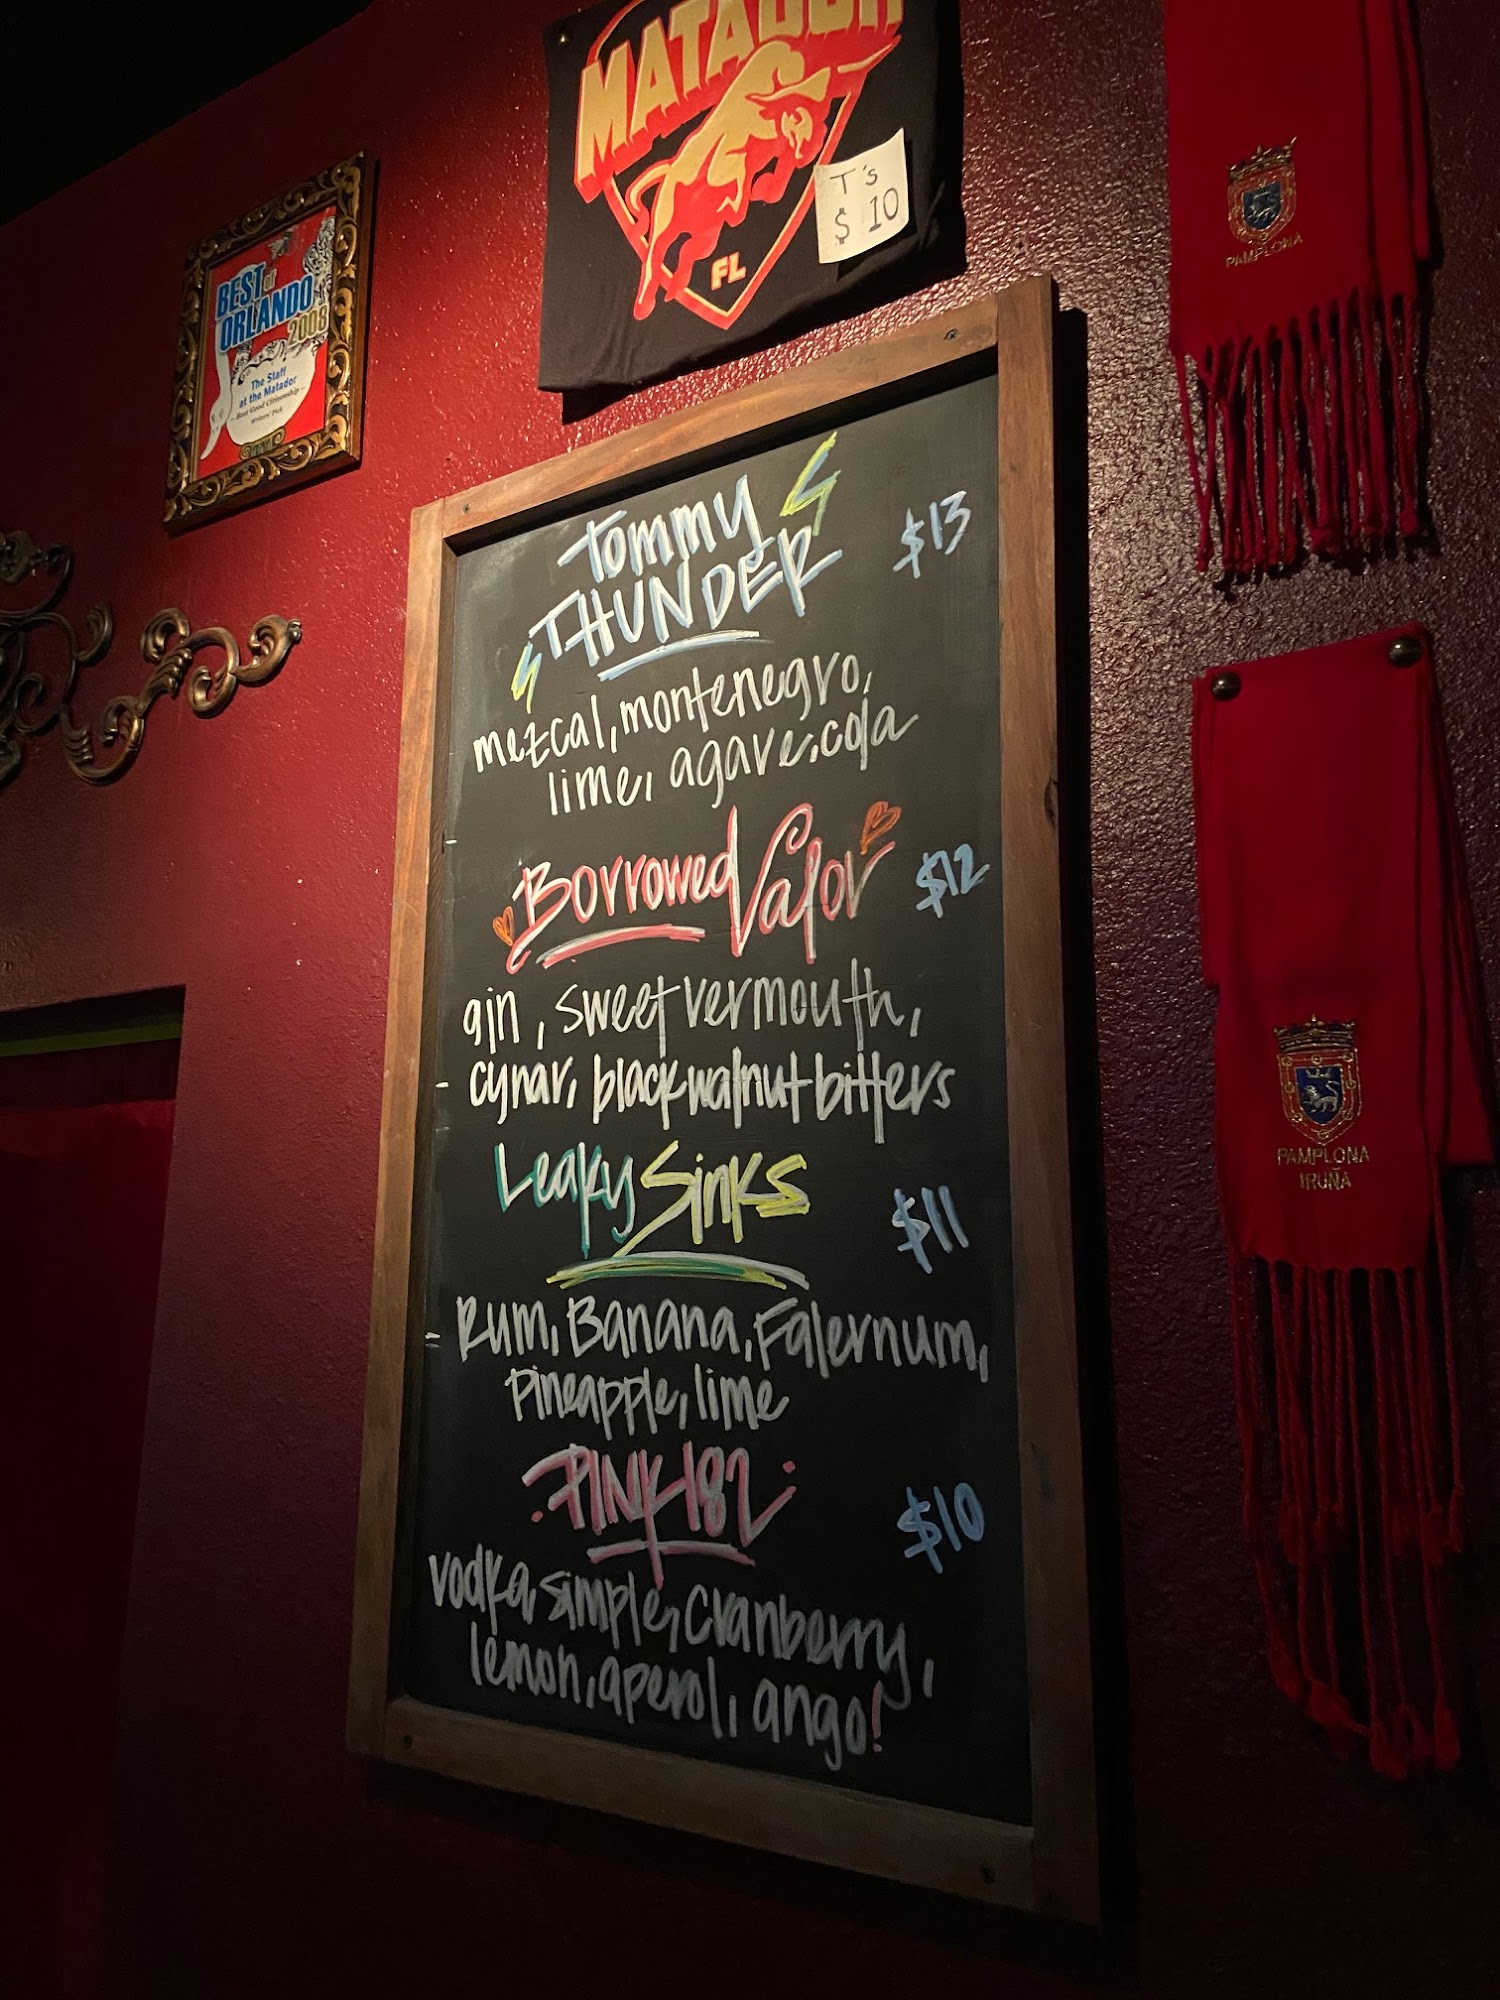 MATADOR
FL
T's
$10
BEST of
ORLANDO
2008
The Staff
at the Matador
Best Good Citizenship
Writers' Pick
PAMPLONA
PAMPLONA
IRUÑA
Tommy
THUNDER $13
mezcal, montenegro,
lime, agave, cola
Borrowed Valor $12
gin, sweet vermouth,
cynar, black walnut bitters
Leaky Sinks $11
Rum, Banana, Falernum,
Pineapple, lime
PINK 182 $10
vodka, simple, cranberry,
lemon, aperol, ango!